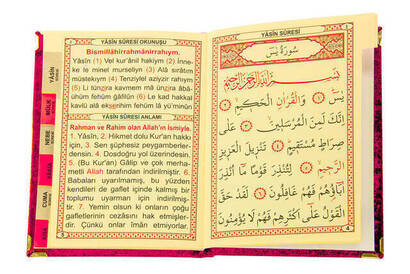 YÂSİN SÛRESİ OKUNUŞU
Bismillâhirrahmânirrahıym.
Yâsîn (1) Vel kur'ânil hakiym (2) İnne-
ke le minel murseliyn (3) Alâ sırâtım
müstekıym (4) Tenziylel aziyzir rahıym
(5) Li tünzira kavmem mâ ünzira âbâ-
ühüm fehüm gâfilûn (6) Le kad hakkal
kavlü alâ ekserihim fehüm lâ yü'minûn
YÂSİN SÛRESİ ANLAMI
Rahman ve Rahim olan Allah'ın ismiyle.
Yâsîn. 1. Yâsîn. 2. Hikmet dolu Kur'an hakkı
için, 3. Sen şüphesiz peygamberler-
densin. 4. Dosdoğru yol üzerindesin.
5. (Bu Kur'an) Gâlip ve çok merha-
metli Allah tarafından indirilmiştir. 6.
Babaları uyarılmamış, bu yüzden
kendileri de gaflet içinde kalmış bir
toplumu uyarman için indirilmiş-
tir. 7. Yemin olsun ki onların çoğu
gafletlerinin cezâsını hak etmişler-
dir. Çünkü onlar îman etmiyorlar.
YÂSİN
MÜLK
NEBE
CUMA
YÂSİN SÛRESİ
سُورَةُ يٰسٓ
بِسْمِ اللّٰهِ الرَّحْمٰنِ الرَّحِيمِ
يٰسٓ ﴿١﴾ وَالْقُرْاٰنِ الْحَكِيمِ ﴿٢﴾
اِنَّكَ لَمِنَ الْمُرْسَلِينَ ﴿٣﴾ عَلٰى
صِرَاطٍ مُسْتَقِيمٍ ﴿٤﴾ تَنْزِيلَ الْعَزِيزِ
الرَّحِيمِ ﴿٥﴾ لِتُنْذِرَ قَوْمًا مَٓا اُنْذِرَ
اٰبَٓاؤُهُمْ فَهُمْ غَافِلُونَ ﴿٦﴾ لَقَدْ حَقَّ
الْقَوْلُ عَلٰٓى اَكْثَرِهِمْ فَهُمْ لَا يُؤْمِنُونَ